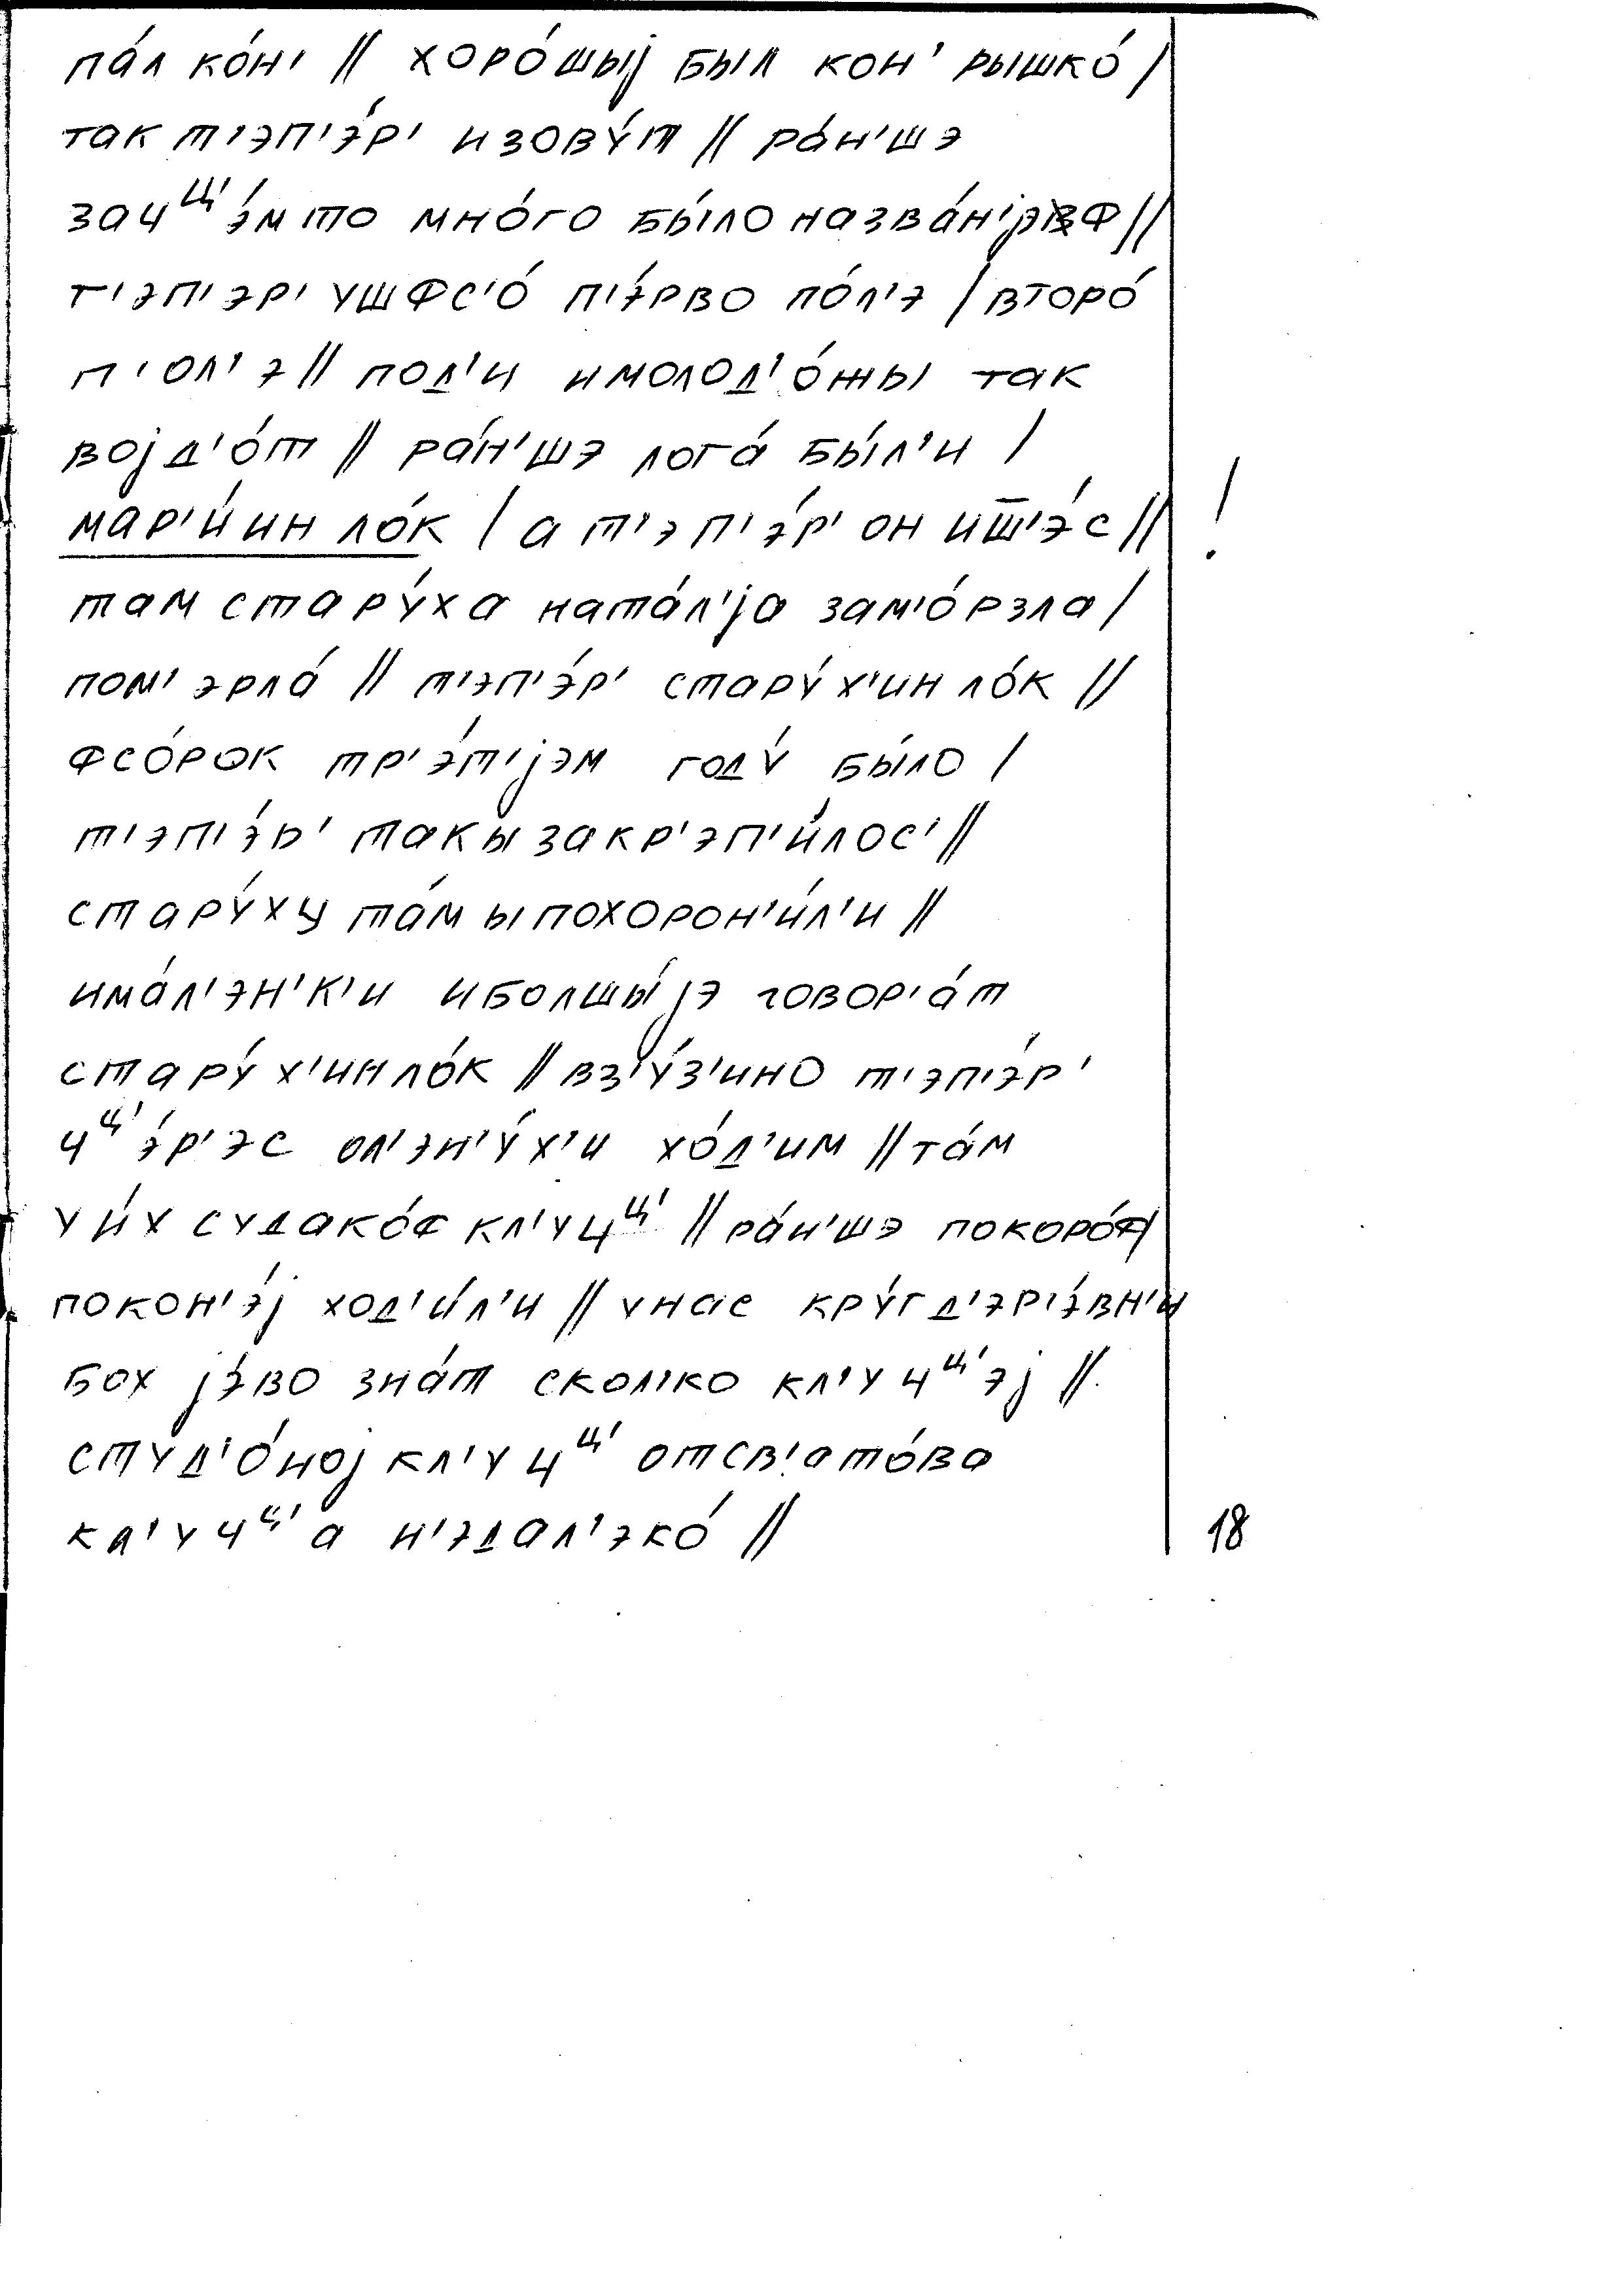 па́л ко́н' // хоро́шыj был кон' рышко́ /
так т'эп'э́р' изову́т // ра́н'шэ
зачᶣ'э́мто мно́го бы́ло назва́н'jэф //
т'эп'эр' ушфс'о́ п'э́рво по́л'э / второ́
п'ол'э // под'и имолод'о́жы так
воjд'о́т // ра́н'шэ лога́ бы́л'и /
мар'и́ин ло́к / а т'эп'э́р' он иш̅'э́с // !
там стару́ха ната́л'jа зам'о́рзла /
пом'эрла́ // т'эп'э́р' стару́х'ин ло́к //
фсо́рок тр'э́т'jэм году́ бы́ло /
т'эп'э́р' такызакр'эп'и́лос' //
стару́ху та́м ыпохорон'и́л'и //
има́л'эн'к'и иболшы́jэ говор'а́т
стару́х'инло́к // вз'у́з'ино т'эп'э́р'
чц'э́р'эс ол'эн'у́х'и хо́д'им // та́м
у и́х судако́ф кл'учц' // ра́н'шэ покоро́ф /
покон'э́j ход'и́л'и // унас кру́г д'эр'э́вн'и
бох jэ́во зна́т скол'ко кл'учц'эj //
студ'о́ноj кл'учц' отсв'ато́ва
кл'учц'а н'эдал'эко́ //
18